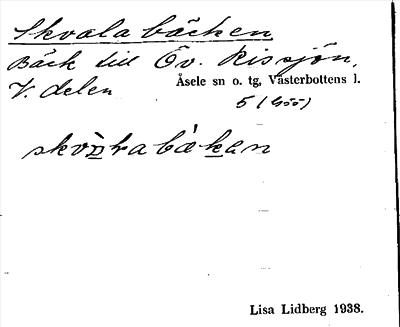 Skvalabäcken
Bäck till Öv. Rissjön,
V. delen Åsele sn o. tg, Västerbottens l.
Lisa Lidberg 1938.